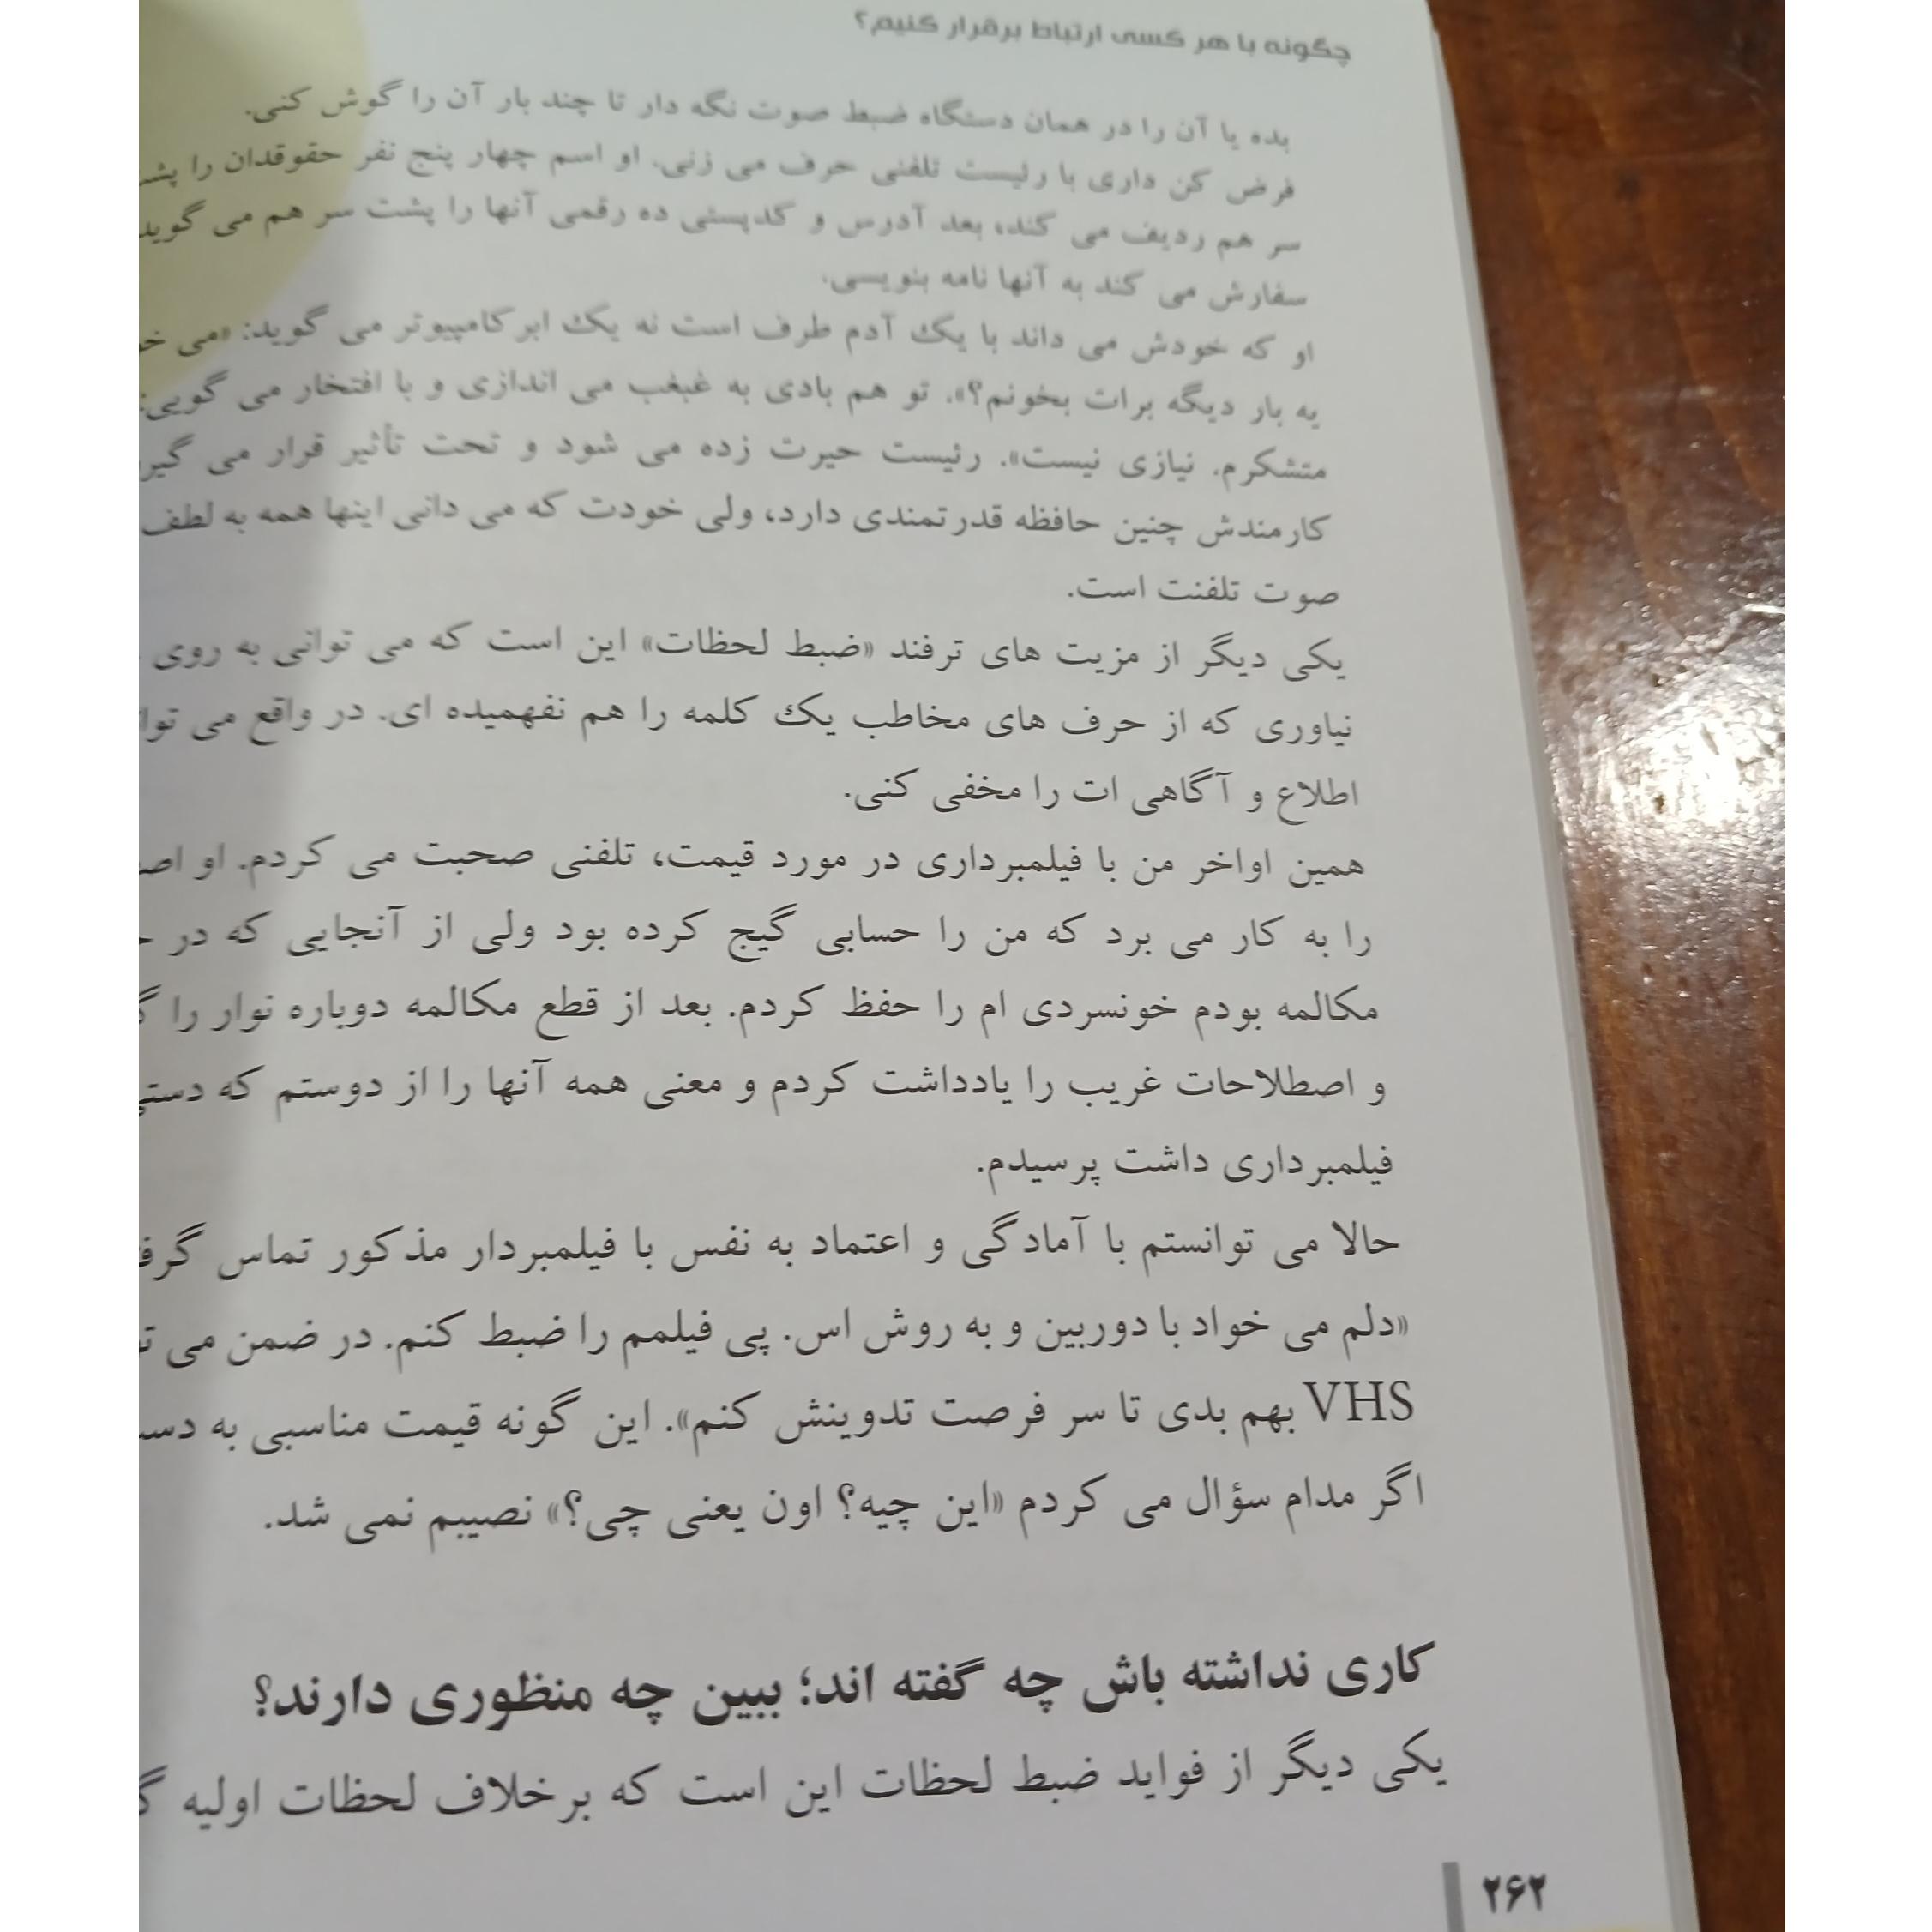 چگونه با هر کسی ارتباط برقرار کنیم؟
بده یا آن را در همان دستگاه ضبط صوت نگه دار تا چند بار آن را گوش کنی.
فرض کن داری با رئیست تلفنی حرف می زنی. او اسم چهار پنج نفر حقوقدان را پشت
سر هم ردیف می کند، بعد آدرس و کدپستی ده رقمی آنها را پشت سر هم می گوید
سفارش می کند به آنها نامه بنویسی.
او که خودش می داند با یک آدم طرف است نه یک ابرکامپیوتر می گوید: «می
یه بار دیگه برات بخونم؟». تو هم بادی به غبغب می اندازی و با افتخار می گویی:
متشکرم. نیازی نیست». رئیست حیرت زده می شود و تحت تأثیر قرار می
کارمندش چنین حافظه قدرتمندی دارد، ولی خودت که می دانی اینها همه به لطف
صوت تلفنت است.
یکی دیگر از مزیت های ترفند «ضبط لحظات» این است که می توانی به روی
نیاوری که از حرف های مخاطب یک کلمه را هم نفهمیده ای. در واقع می
اطلاع و آگاهی ات را مخفی کنی.
همین اواخر من با فیلمبرداری در مورد قیمت، تلفنی صحبت می کردم. او
را به کار می برد که من را حسابی گیج کرده بود ولی از آنجایی که در
مکالمه بودم خونسردی ام را حفظ کردم. بعد از قطع مکالمه دوباره نوار را
و اصطلاحات غریب را یادداشت کردم و معنی همه آنها را از دوستم که دستی
فیلمبرداری داشت پرسیدم.
حالا می توانستم با آمادگی و اعتماد به نفس با فیلمبردار مذکور تماس
«دلم می خواد با دوربین و به روش اس. پی فیلمم را ضبط کنم. در ضمن می
VHS بهم بدی تا سر فرصت تدوینش کنم». این گونه قیمت مناسبی به
اگر مدام سؤال می کردم «این چیه؟ اون یعنی چی؟» نصیبم نمی شد.
کاری نداشته باش چه گفته اند؛ ببین چه منظوری دارند؟
یکی دیگر از فواید ضبط لحظات این است که برخلاف لحظات اولیه
۲۶۲